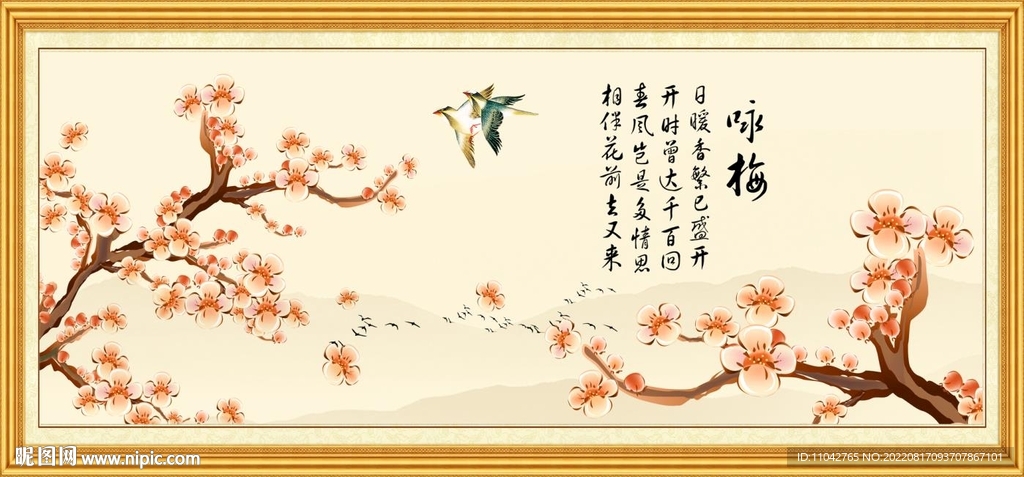 咏梅
日暖香繁已盛开
开时曾达千百回
春风岂是多情思
相伴花前去又来
昵图网 www.nipic.com
ID:11042765 NO:20220817093707867101